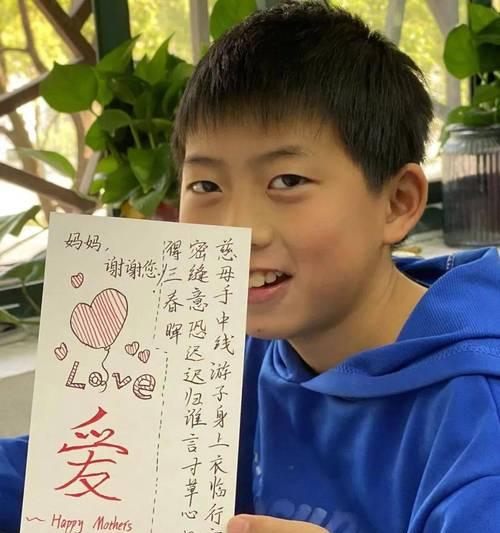 妈妈，
谢谢您.
Love
爱
~ Happy Mothers
慈母手中线游子身上衣临行
密缝意恐迟迟归谁言寸草心
得三春晖